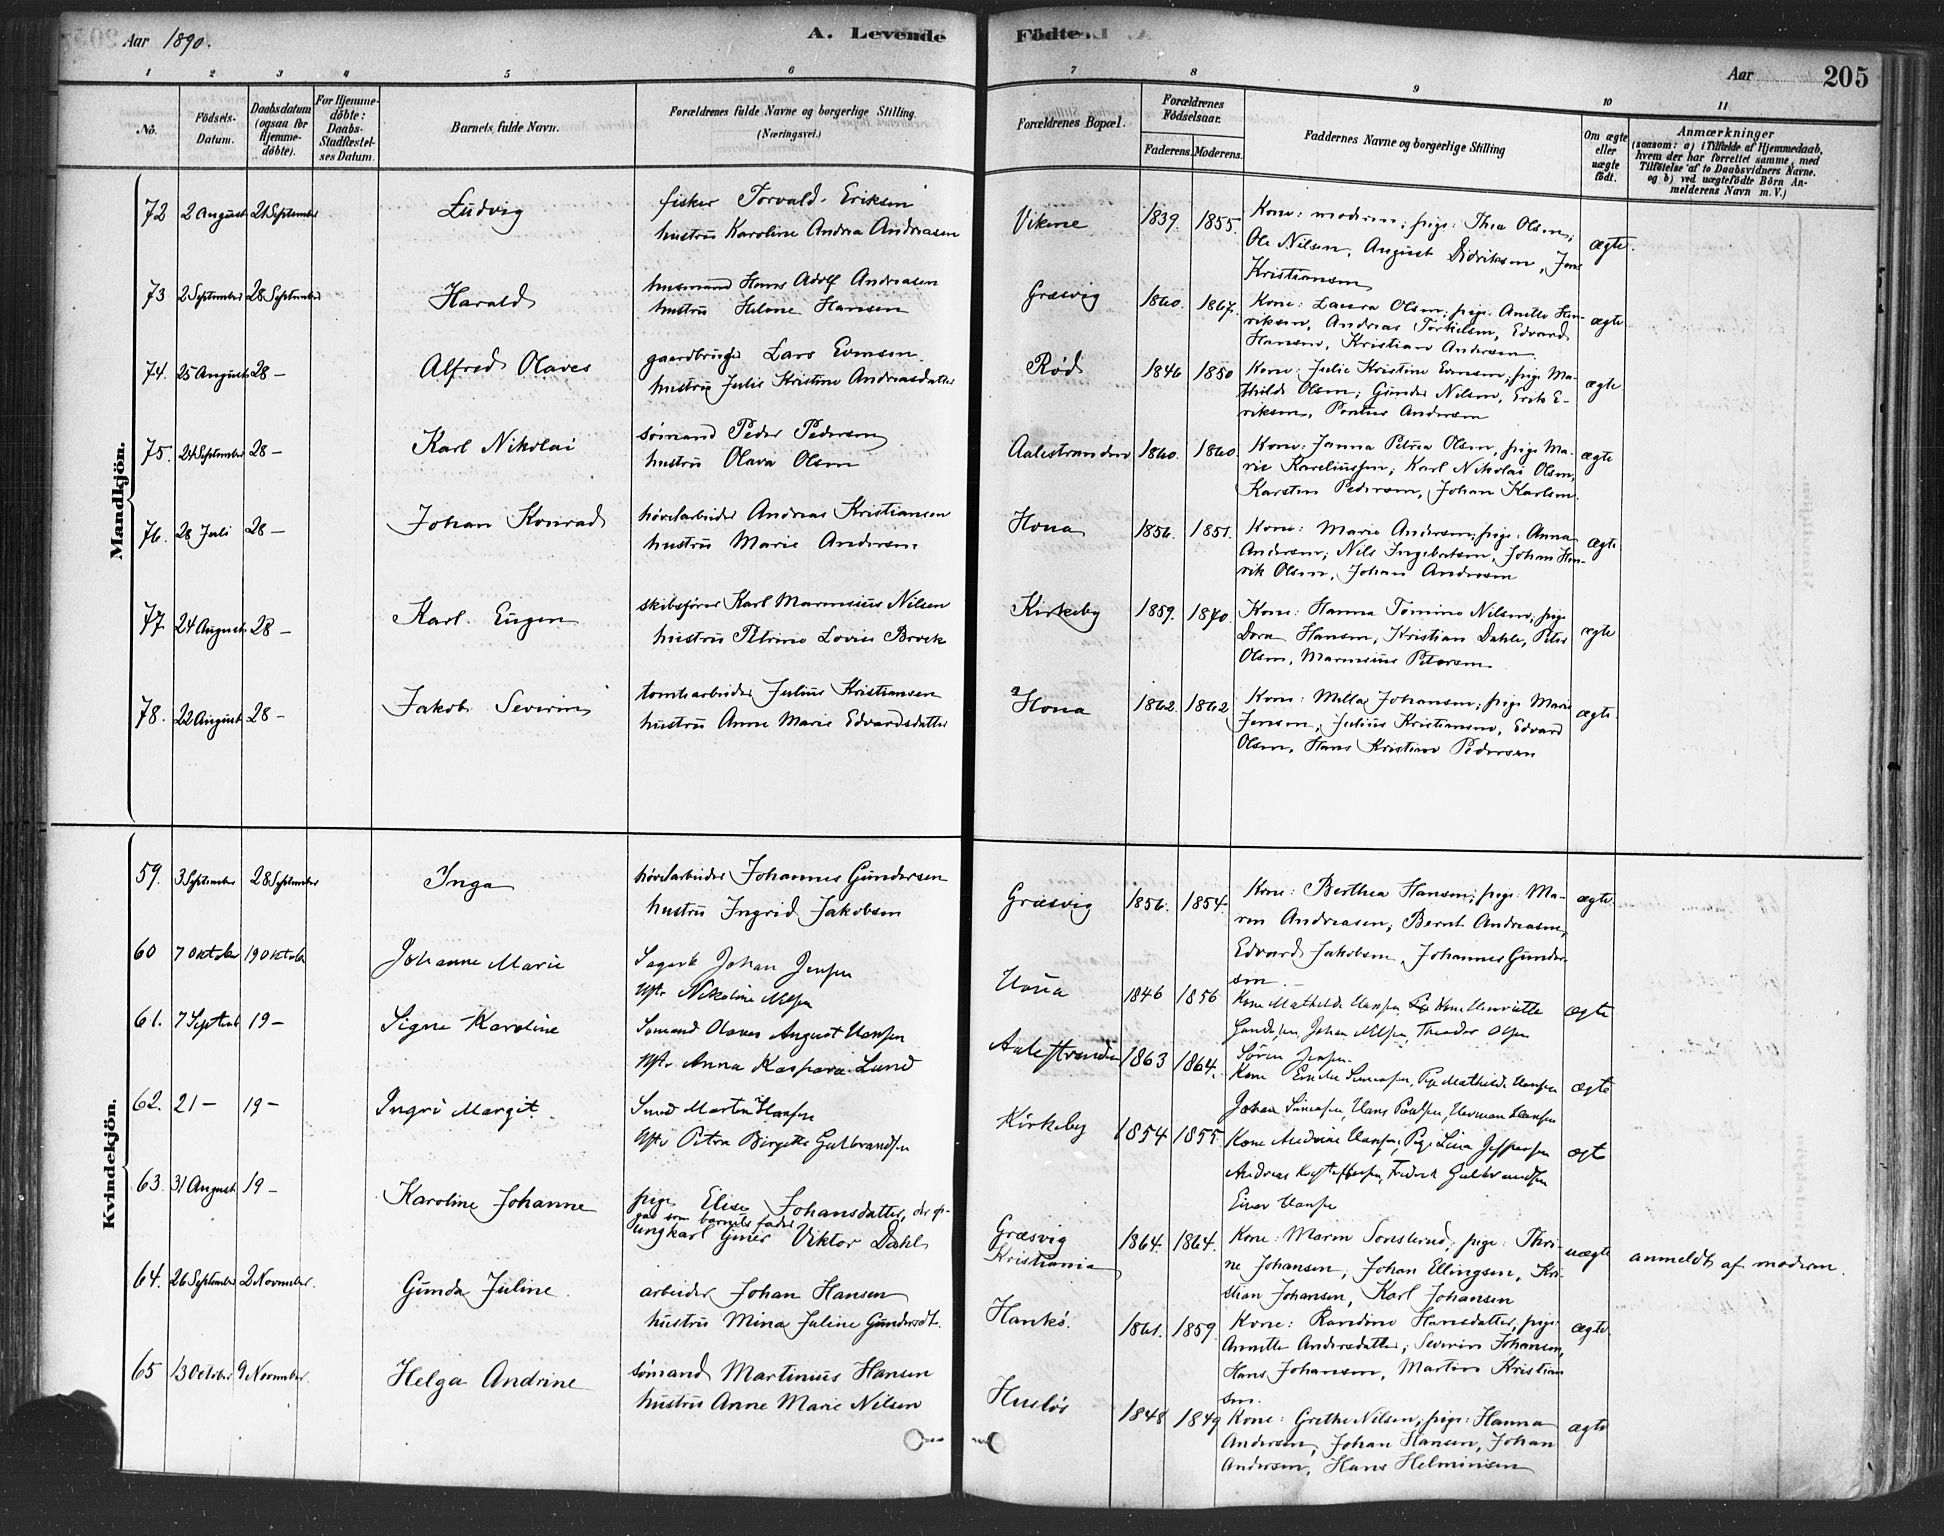 Aar 1890.
A. Levende Födte.
Aar
205
1 2 3 4 5 6 7 8 9 10 11
No.
Födsels-
Datum.
Daabsdatum
(ogsaa for
Hjemme-
döbte).
For Hjemme-
döbte:
Daabs-
Stadfæstel-
ses Datum.
Barnets fulde Navn.
Forældrenes fulde Navne og borgerlige Stilling.
(Næringsvei.)
Forældrenes Bopæl.
Forældrenes
Födselsaar.
Faderens. Moderens.
Faddernes Navne og borgerlige Stilling
Om ægte
eller
uægte
födt.
Anmærkninger
(saasom: a) i Tilfælde af Hjemmedaab,
hvem der har forrettet samme, med
Tilföielse af to Daabsvidners Navne.
og b) ved uægtefödte Börn An-
melderens Navn m.V.)
Mandkjön.
72 2 August 21 September Ludvig
fisker Torvald Eriksen
hustru Karoline Andrea Andreasen
Vikene 1839. 1855.
Kone: moderen; pige: Thea Olsen;
Ole Nilsen, August Didriksen, Jens
Kristiansen
ægte.
73 2 September 28 September Harald
husmand Hans Adolf Andreasen
hustru Helene Hansen
Græsvig 1860. 1867.
Kone: Laura Olsen; pige: Anette Hen-
riksen, Andreas Torkelsen, Edvard
Hansen, Kristian Andersen
ægte
74. 25 August 28 - Alfred Olaves
gaardbruger Lars Evensen.
hustru Julie Kristine Andreasdatter
Rød 1846 1850
Kone: Julie Kristine Evensen; pige Ma-
thilde Olsen; Gunder Nilsen, Erik E-
riksen, Pontus Andersen
ægte
75. 24 September 28 - Karl Nikolai
sømand Peder Pedersen
hustru Olava Olsen
Aalestranden 1860. 1860.
Kone: Janna Petrea Olsen, pige Ma-
rie Kareliussen; Karl Nikolai Olsen,
Karsten Pedersen, Johan Karlsen.
ægte
76. 28 Juli 28 - Johan Konrad
høvelarbeider Andreas Kristiansen
hustru Marie Andersen
Houa 1856. 1851.
Kone: Marie Andersen; pige: Anna
Andersen; Nils Ingebretsen, Johan Hen-
rik Olsen, Johan Andresen
ægte
77. 24 August 28 - Karl Eugen
skibsfører Karl Marensius Nilsen
hustru Petrine Lovise Brock
Kirkeby 1859. 1870.
Kone: Hanna Tomine Nilsen, pige
Dora Hansen, Kristian Dahle, Peter
Olsen, Marensius Petersen.
ægte
78. 22 August 28 - Jakob Severin
tomtearbeider Julius Kristiansen
hustru Anne Marie Edvardsdatter
Houa 1862. 1862
Kone: Milla Johansen; pige Marie
Jensen; Julius Kristiansen, Edvard
Olsen, Hans Kristian Pedersen
ægte.
Kvindekjön.
59. 3 September 28 September Inga
høvelarbeider Johannes Gundersen
hustru Ingrid Jakobsen
Græsvig 1856. 1854.
Kone: Berthea Hansen; pige: Ma-
ren Andreasen; Bernt Andreasen,
Edvard Jakobsen, Johannes Gunder-
sen.
ægte.
60 7 Oktober 19 Oktober Johanne Marie
Johan Jensen
Hstr. Nikoline Nilsen
Houa 1846 1856
Kone Mathilde Hansen Kone Henriette
Johan Nilsen, Theodor Olsen
Søren Jensen.
ægte
61. 7 Septemb 19 - Signe Karoline
Sømand Olaves August Hansen
Hstr. Anna Kaspara Lund
Aalestranden 1863 1864.
Kone Simensen, Pige Mathilde Hansen
Johan Simensen, Hans Paulsen, Herman Hansen
ægte
62. 21 - 19 - Ingri Margit
Martin Hansen
Hstr Petra Birgitte Gulbrandsen
Kirkeby 1854 1855.
Kone Andrine Hansen, Pige Lina Jeppesen
Andreas Fredrik Gulbrandsen
Einar Hansen
ægte
63. 31 August 19 - Karoline Johanne
pige Elise Johansdatter, der op-
gav som barnets fader
ungkarl Viktor Dahl
Græsvig
Kristiania
1864. 1864.
Kone: Maren pige: Thri-
ne Johansen, Johan Ellingsen, Kri-
stian Johansen, Karl Johansen
uægte
anmeldt af moderen.
64. 26 September 2 November. Gunda Juline.
arbeider Johan Hansen
hustru Mina Juline Gundersdt.
Hankø. 1861. 1859.
Kone: Randine Hansdatter, pige
Annette Andersdatter; Severin Johansen,
Hans Johansen, Martin Kristian
sen.
ægte
65 13 October 9 November. Helga Andrine
sømand Martinius Hansen
hustru Anne Marie Nilsen
Husløs 1848 1849
Kone: Grethe Nilsen; pige: Hanna
Andersen, Johan Hansen, Johan
Andersen, Hans Helminsen
ægte